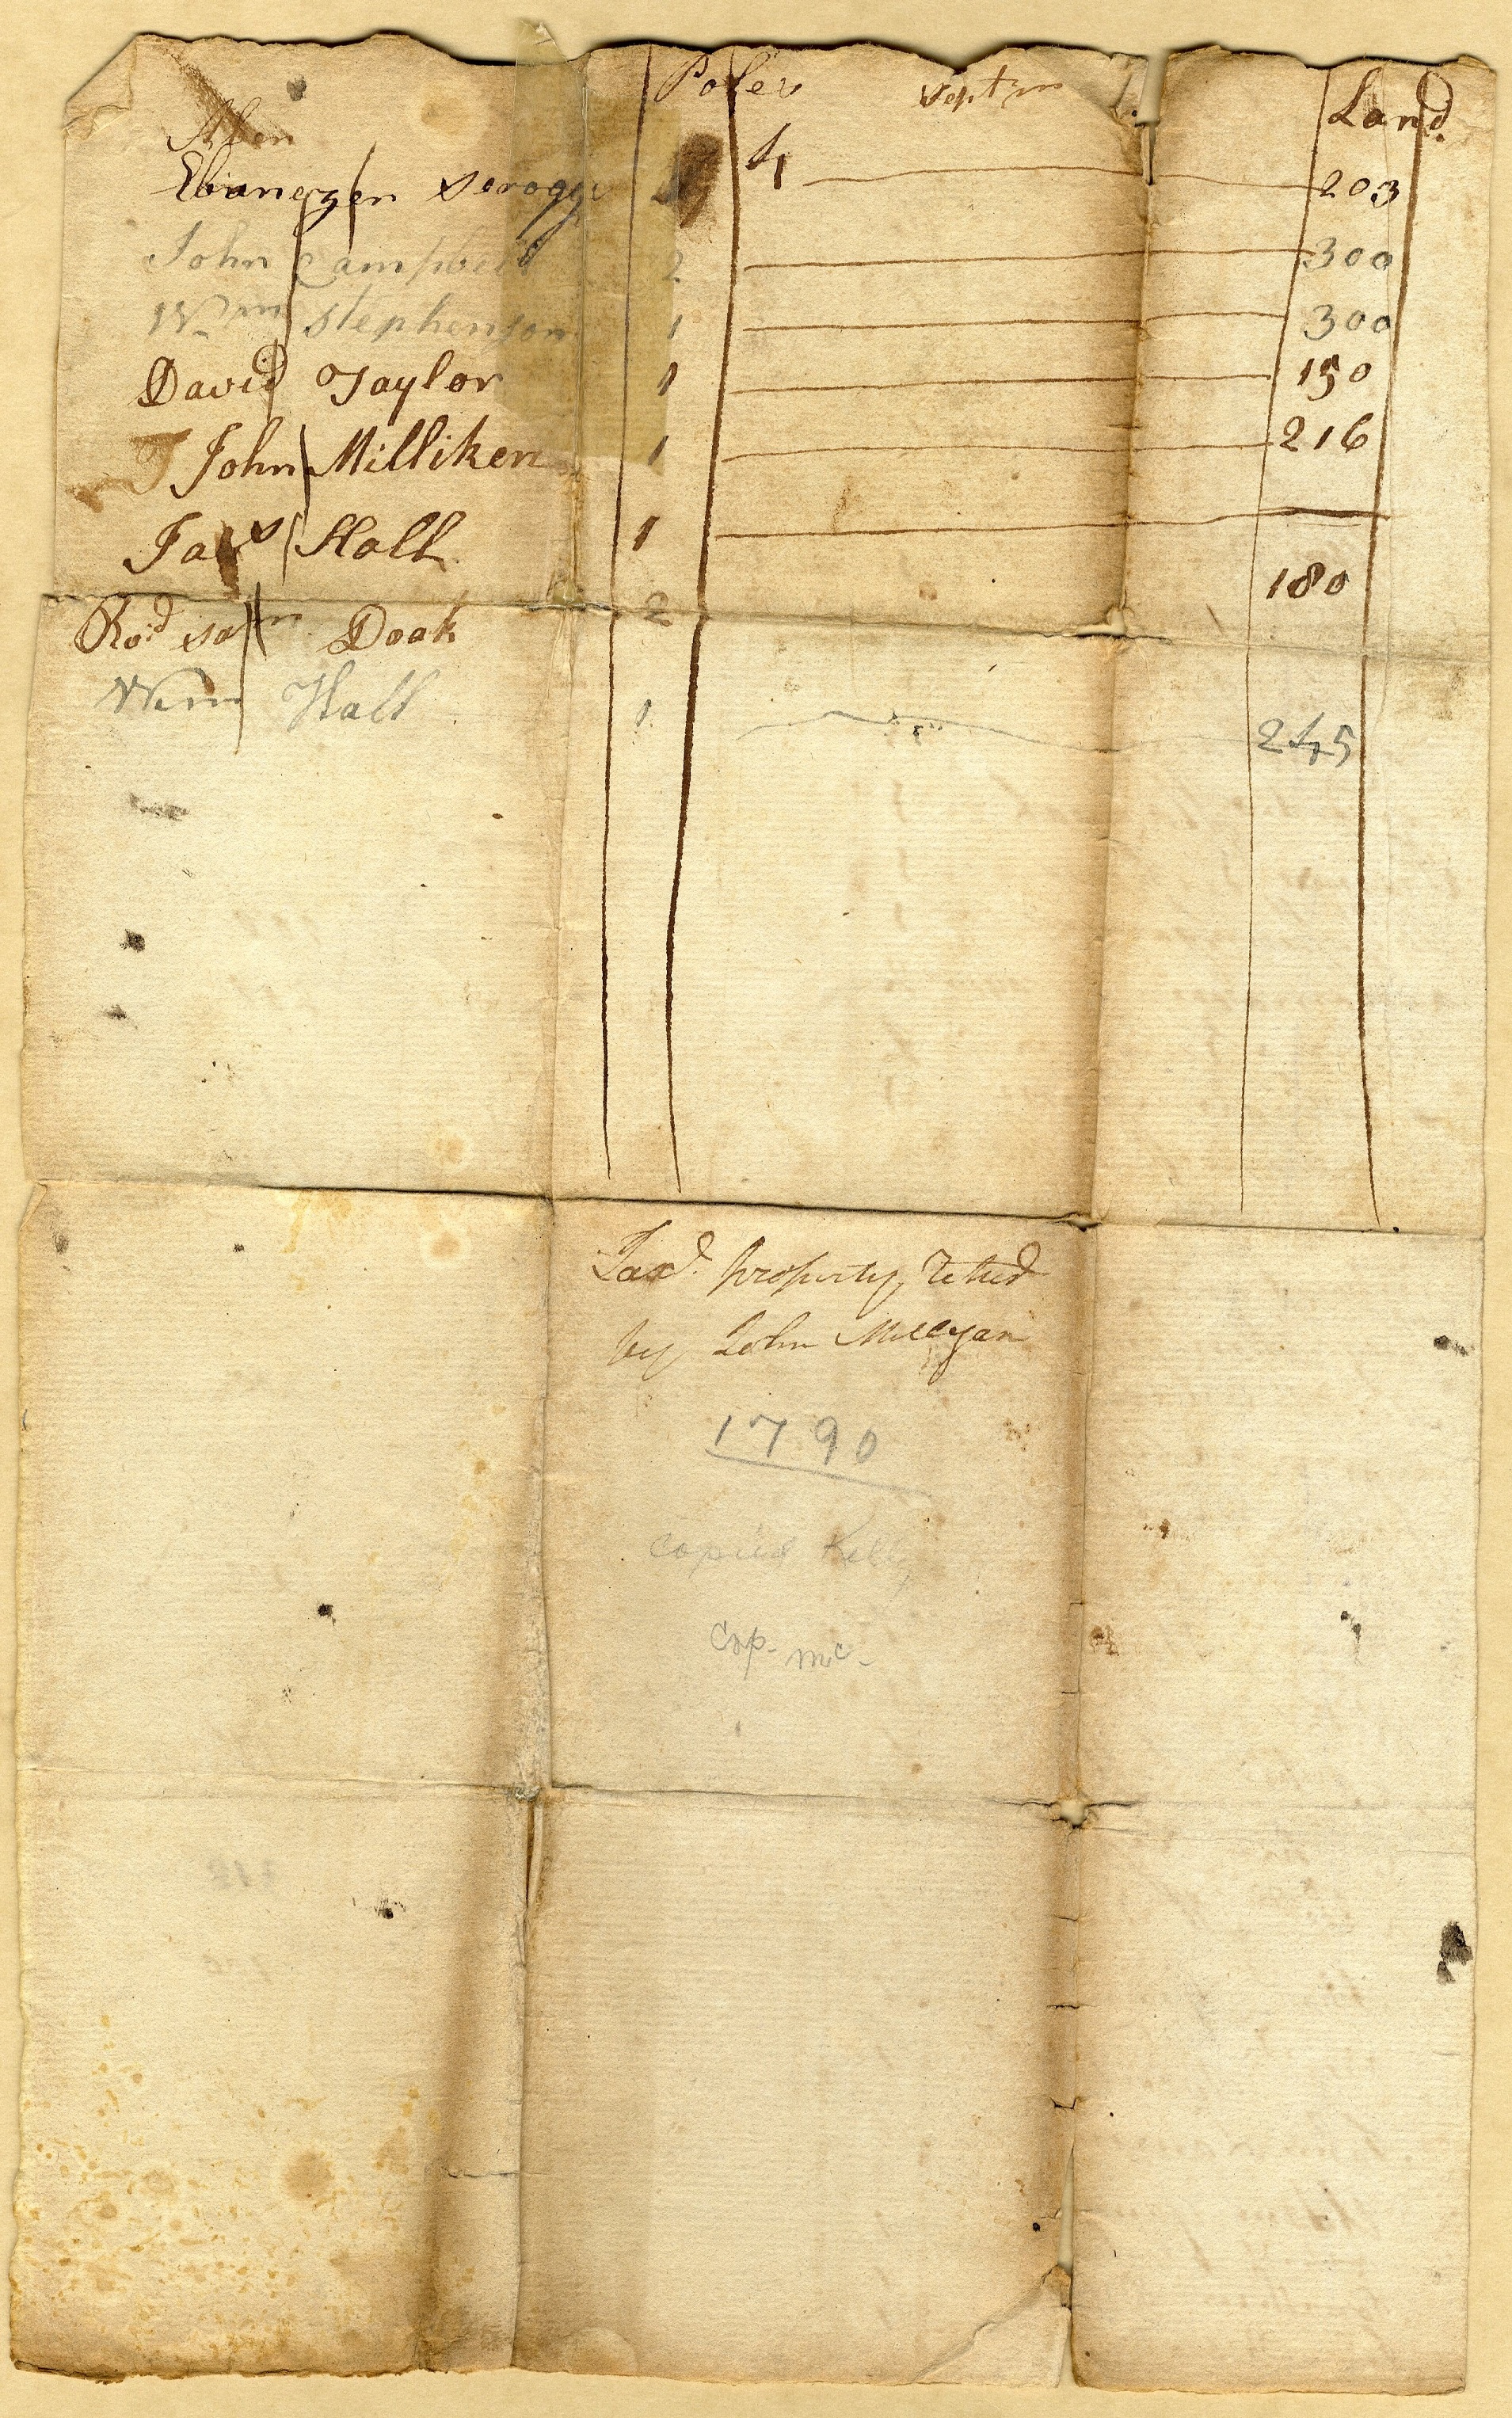 Poles Land
Ebenezer 4 203
John Campbell 2 300
Wm Stephenson 1 300
David Taylor 1 150
John Milliken 1 216
Jas Hall 1
180
Doak 2
Wm Hall 1 245
Taxd. property, Retud
by John Millyan
1790
Copied Kelly
Cop. mc.